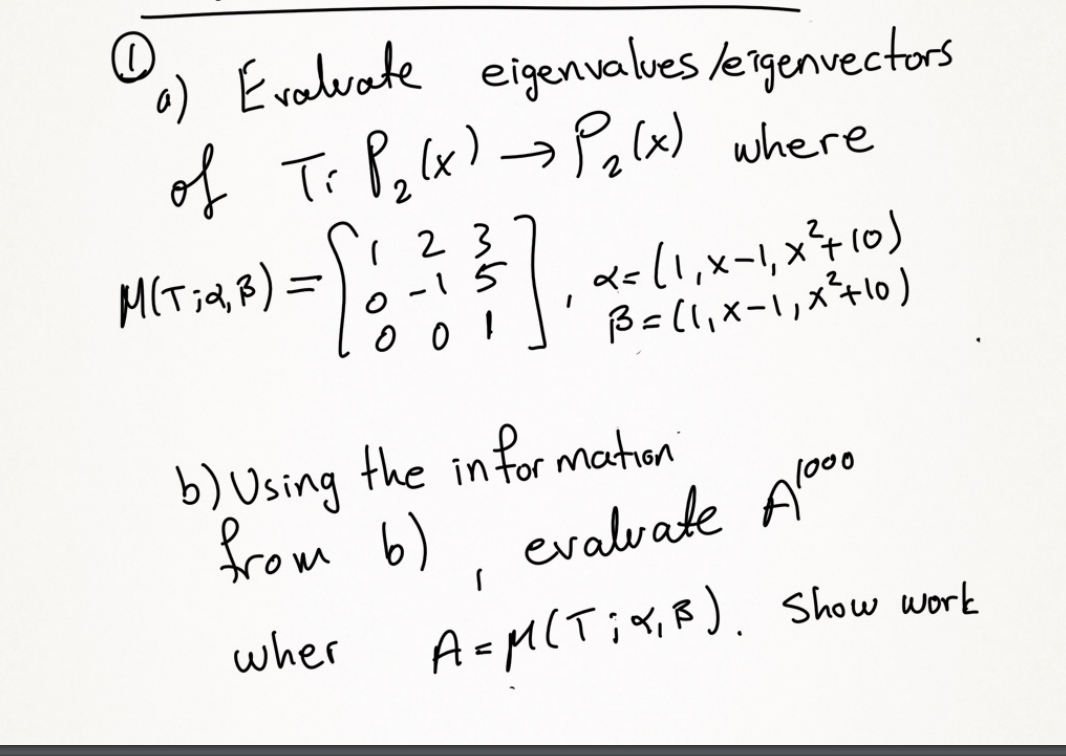 ①
a) Evaluate eigenvalues/eigenvectors
of T: P₂(x) → P₂(x) where
M(T;α,β) = [1 2 3
0 -1 5
0 0 1], α=(1,x-1,x²+10)
β=(1,x-1,x²+10)
b) Using the information
from b), evaluate A¹⁰⁰⁰
wher A=M(T;α,β). Show work